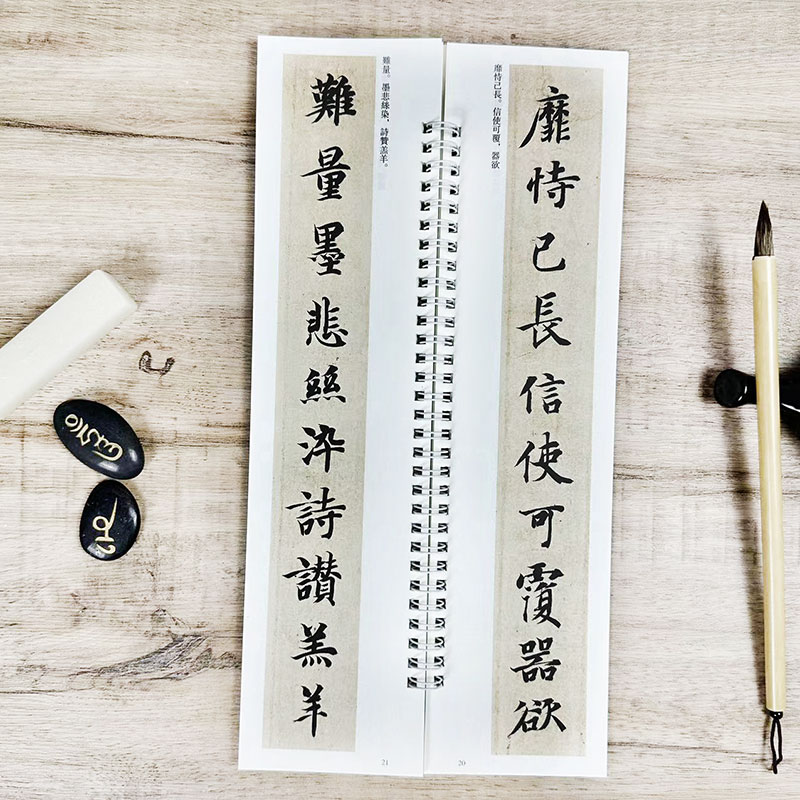 靡恃己長。信使可覆，器欲
靡恃己長信使可覆器欲
20
難量。墨悲絲染，詩贊羔羊。
難量墨悲絲染詩讃羔羊
21